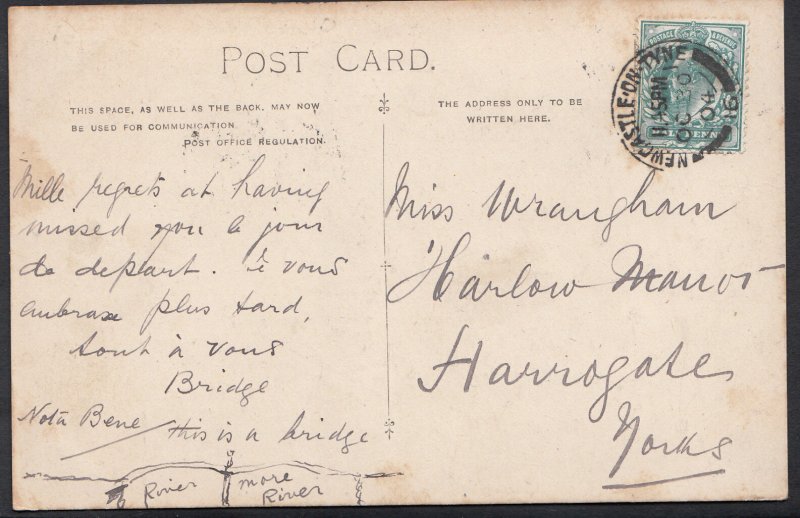 POST CARD.
THIS SPACE, AS WELL AS THE BACK, MAY NOW
BE USED FOR COMMUNICATION.
POST OFFICE REGULATION.
THE ADDRESS ONLY TO BE
WRITTEN HERE.
POSTAGE & REVENUE
NEWCASTLE-ON-TYNE
11.45PM
OC 30
04
Mille regrets at having
missed you le jour
de depart. Je vous
embrasse plus tard,
tout à vous
Bridge
Nota Bene
this is a bridge
River
more
River
Miss Wrangham
Harlow Manor
Harrogate
Yorks